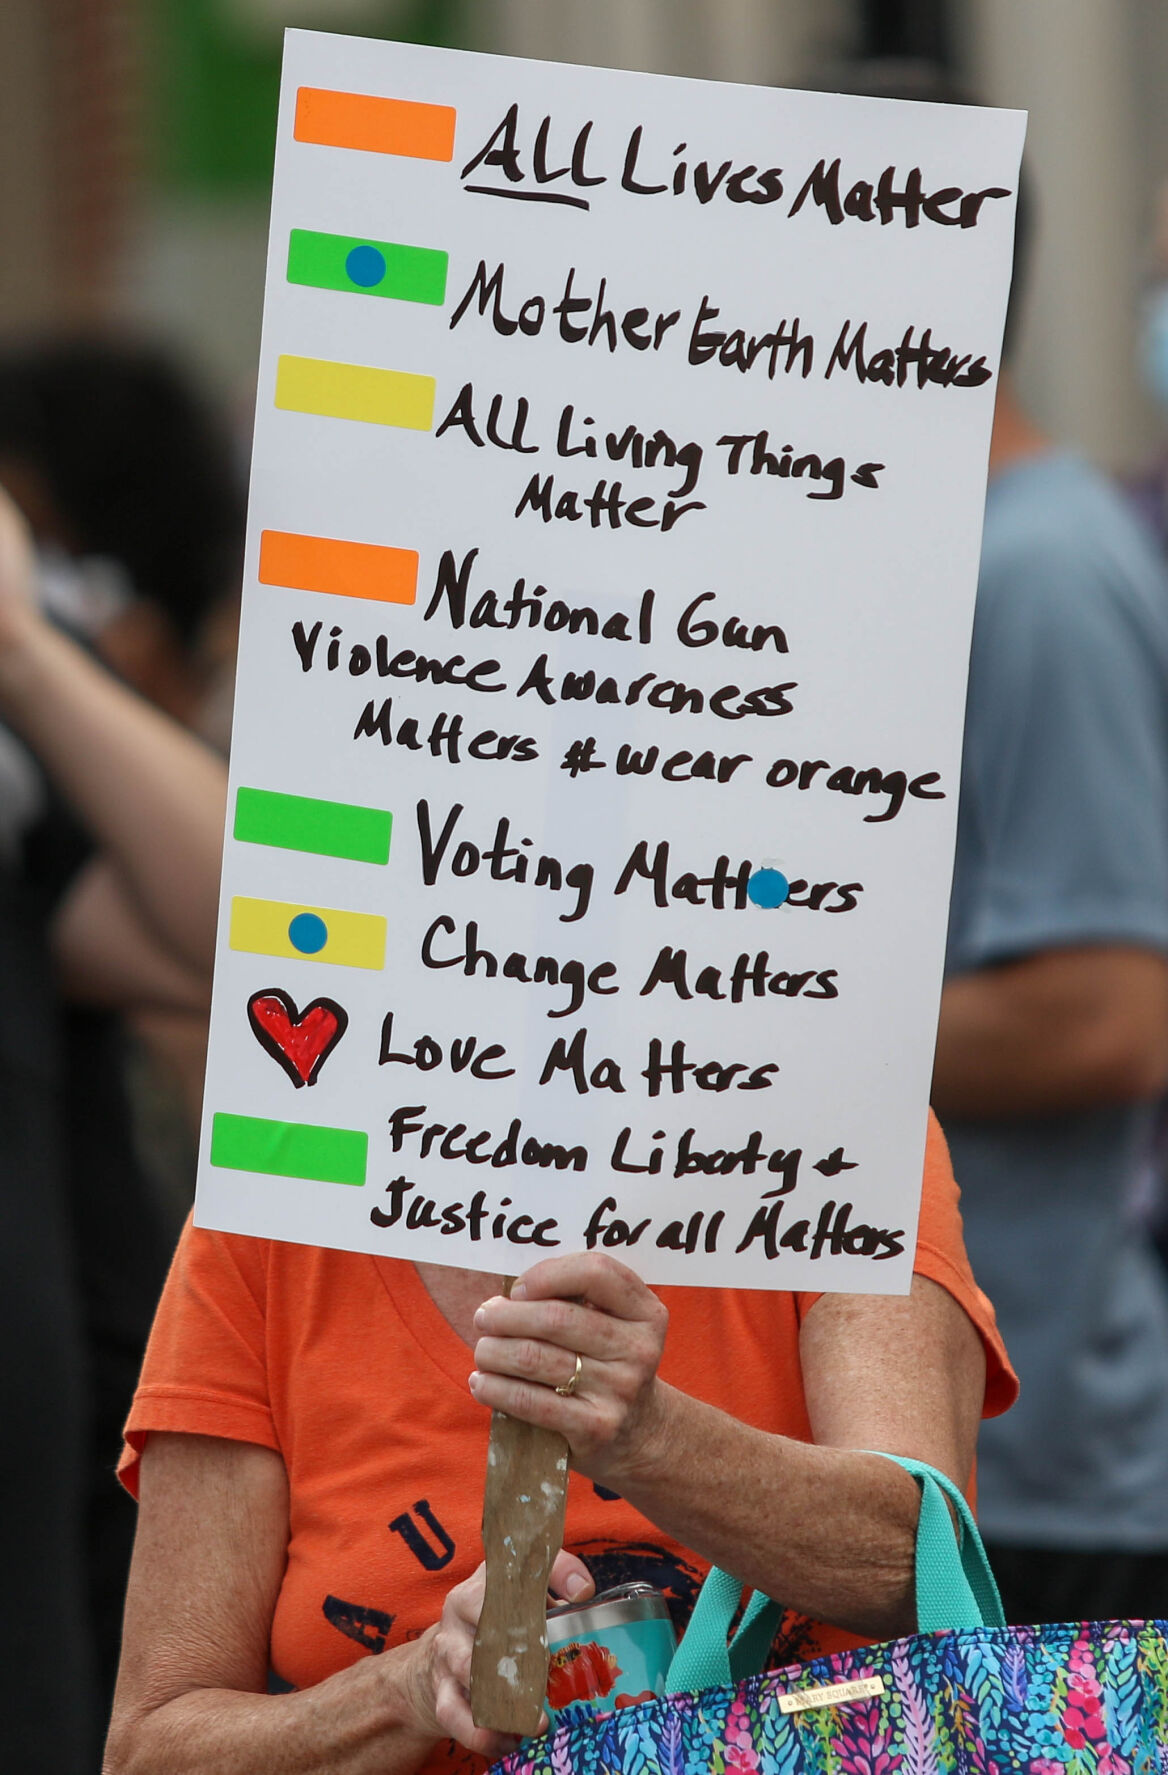 ALL Lives Matter
Mother Earth Matters
ALL Living Things
Matter
National Gun
Violence Awareness
Matters # wear orange
Voting Matters
Change Matters
Love Matters
Freedom Liberty +
Justice for all Matters
A U
MARY SQUARE